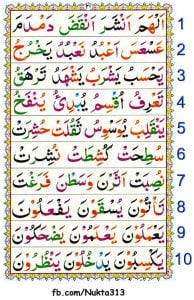 اَلْهَمَ اَنْشَرَ اَنْقَضَ دَمْدَمَ 1
عَسْعَسَ اَعْبُدُ نَعْبُدُ يَخْرُجُ 2
يَحْسَبُ يَشْرَبُ يَشْهَدُ تَرْهَقُ 3
تَعْرِفُ اُقْسِمُ يُبْدِئُ يُنْفَخُ 4
يَنْقَلِبُ يُوَسْوِسُ ثَقُلَتْ حُشِرَتْ 5
سُطِحَتْ كُشِطَتْ نُشِرَتْ 6
نُصِبَتْ اَثَرْنَ وَسَطْنَ فَرَغْتَ 7
تَاْتُوْنَ يُسْقَوْنَ يَفْعَلُوْنَ 8
يَعْمَلُوْنَ يَعْلَمُوْنَ يَضْحَكُوْنَ 9
يَكْسِبُوْنَ يَدْخُلُوْنَ يَنْظُرُوْنَ 10
fb.com/Nukta313